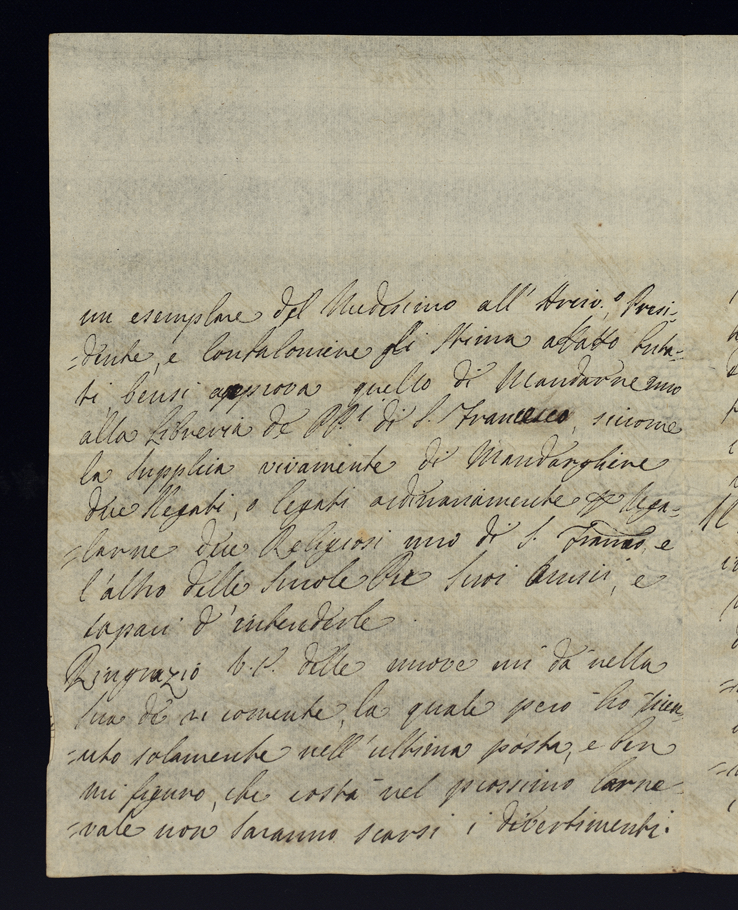 un esemplare del Medesimo all' Presi-
=dente, e Confaloniere gli stima affatto butta-
ti, bensi approva quello di Mandarne uno
alla Libreria de PP.i di S. Francesco, siccome
la supplica vivamente di Mandargliene
due slegati, o legati ordinariamente p Rega-
=larne due Religiosi uno di S. Franco, e
l'altro delle Scuole Pie suoi Amici, e
capaci d'intenderle.
Ringrazio V.S. delle nuove mi da nella
sua di corrente, la quale pero ho rice-
=uto solamente nell'ultima posta, e ben
mi figuro, che costà nel prossimo Carne-
=vale non saranno scarsi i divertimenti.